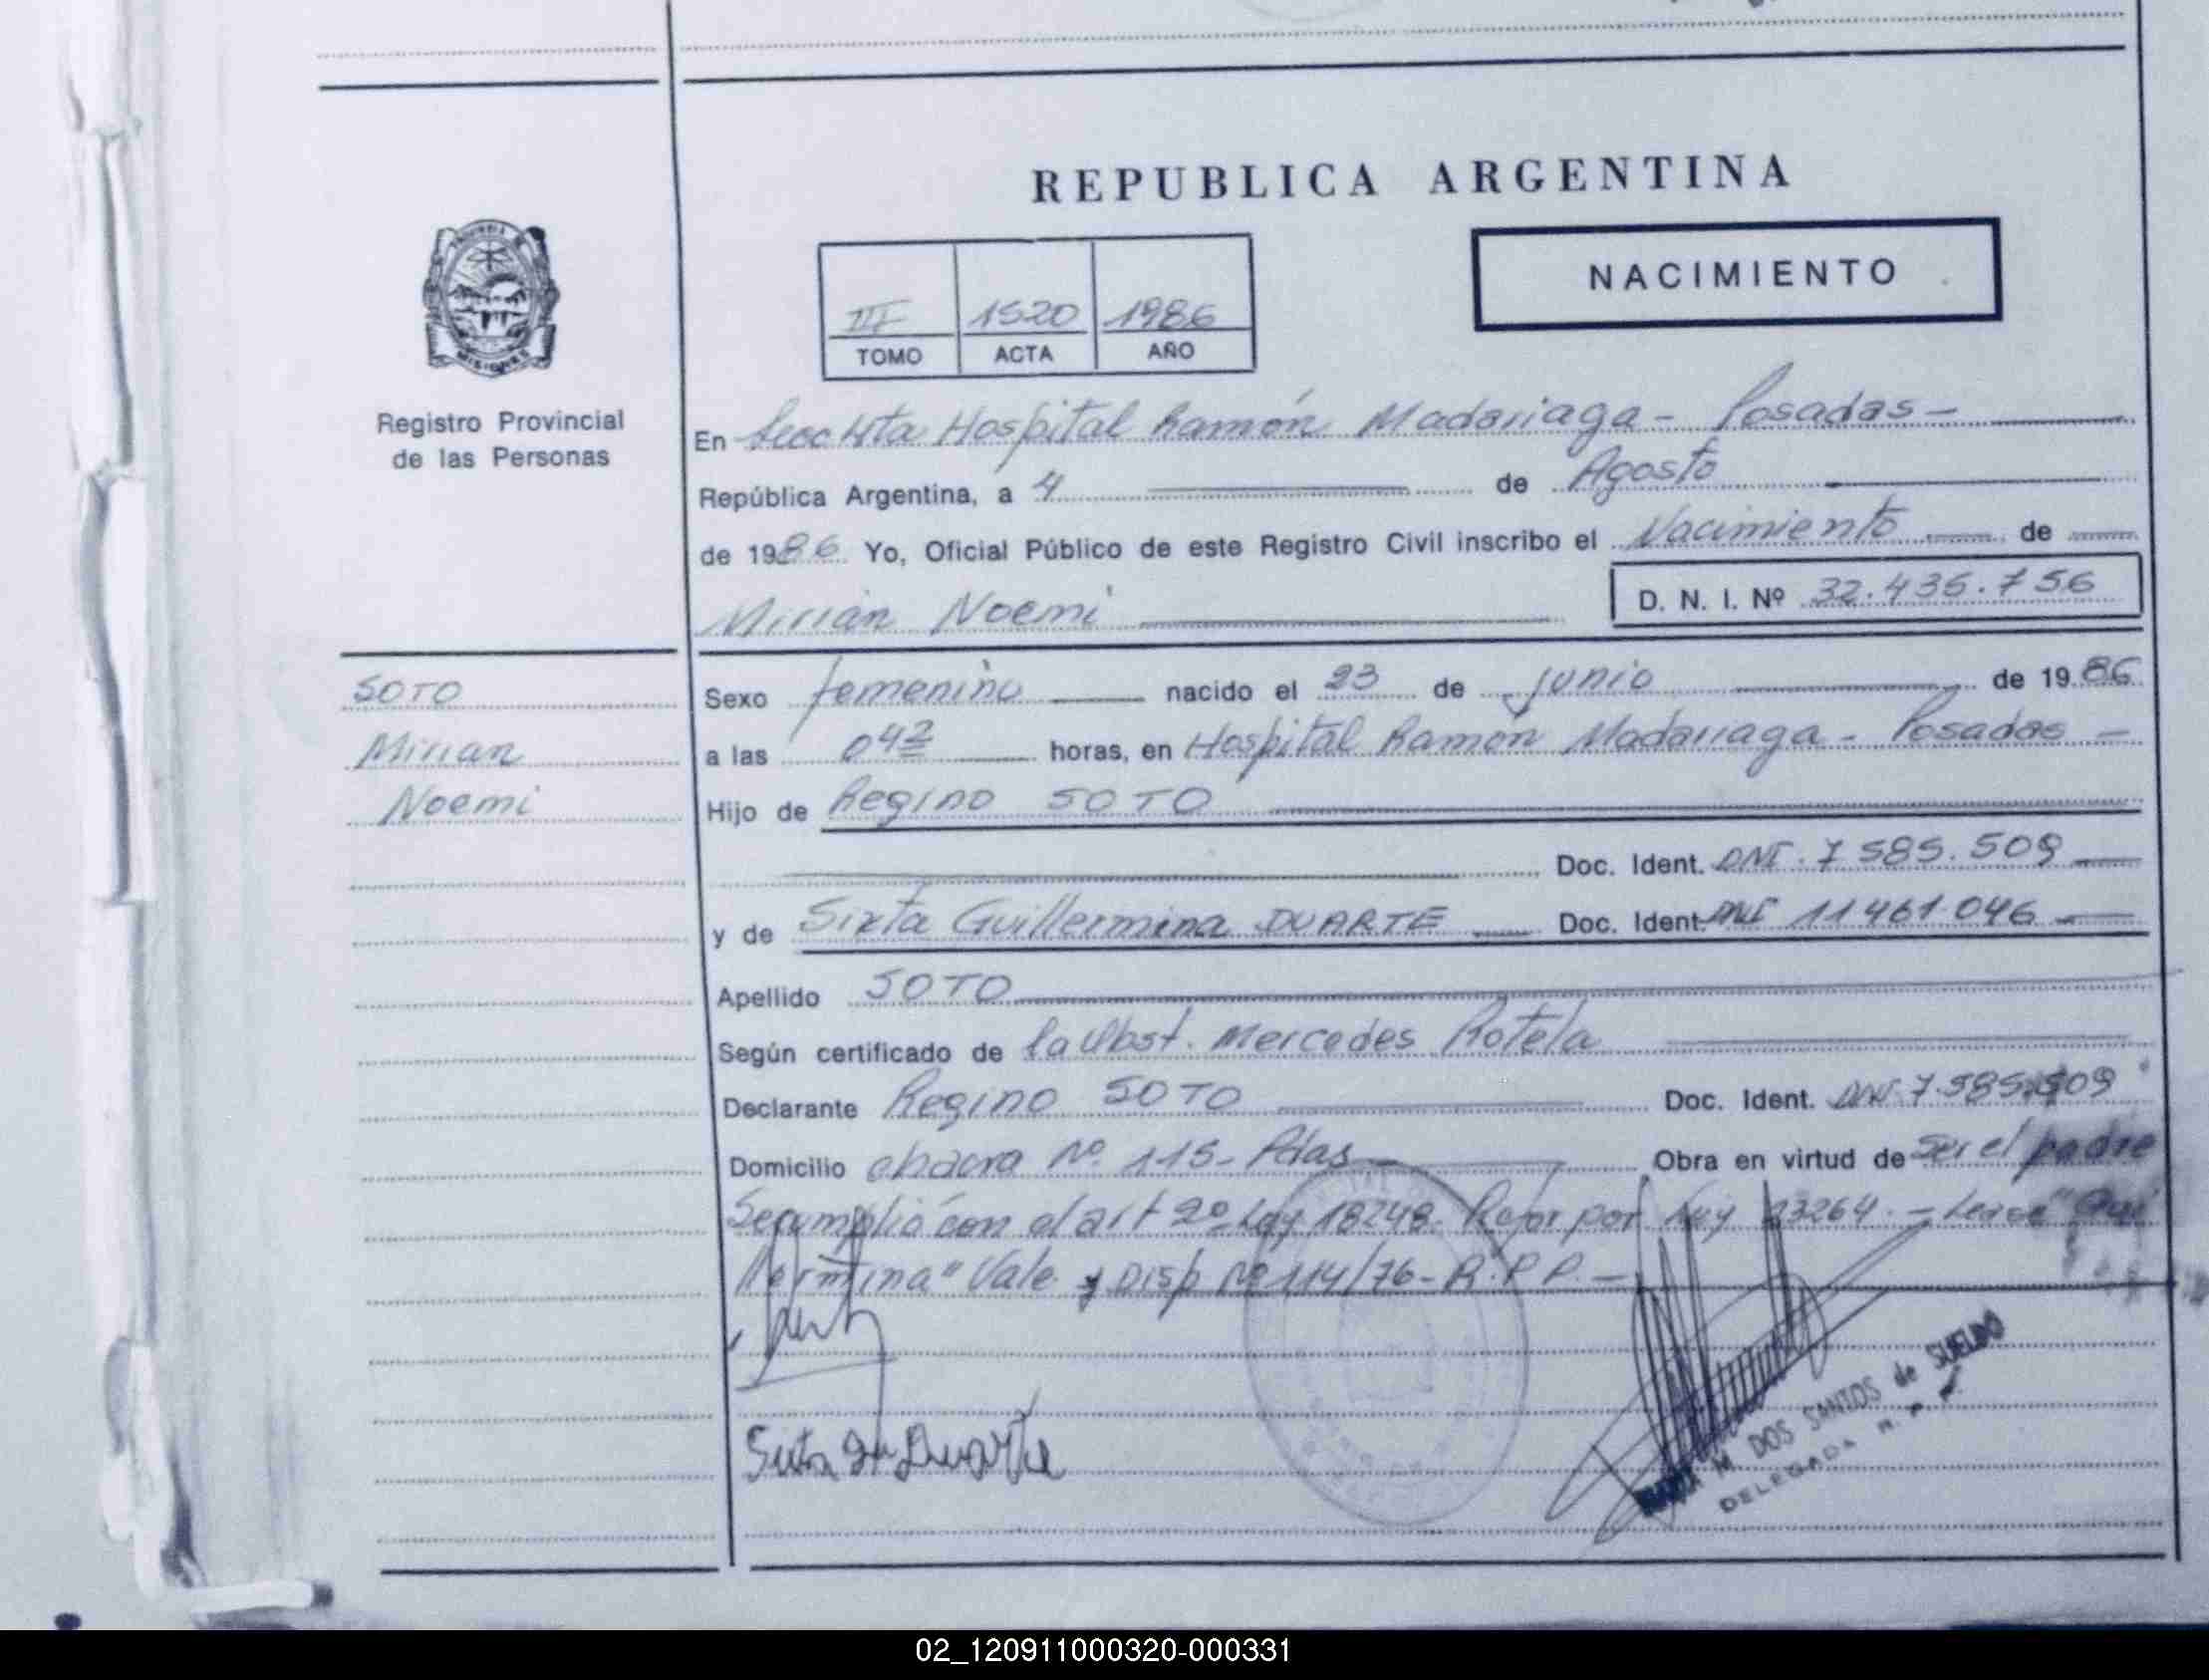 REPUBLICA ARGENTINA
NACIMIENTO
III 1520 1986
TOMO ACTA AÑO
Registro Provincial
de las Personas
En Secc 4ta Hospital Ramón Madariaga - Posadas -
República Argentina, a 4 de Agosto
de 1986 Yo, Oficial Público de este Registro Civil inscribo el Nacimiento de
Mirian Noemi D. N. I. Nº 32.435.756
SOTO
Mirian
Noemi
Sexo femenino nacido el 23 de Junio de 1986
a las 04 horas, en Hospital Ramón Madariaga - Posadas -
Hijo de Regino SOTO
Doc. Ident. DNI. 7585.509
y de Sixta Guillermina DUARTE Doc. Ident. DNI 11461.046
Apellido SOTO
Según certificado de la Obst. Mercedes Rotela
Declarante Regino SOTO Doc. Ident. DNI 7.585.509
Domicilio chacra Nº 115 - Pdas - Obra en virtud de ser el padre
Se cumplió con el art 2º Ley 18248. Refor por Ley 23264. - Lease "Gui
llermina" Vale y Disp Nº 114/76 - R.P.P. -
Sixta G Duarte
M. DOS SANTOS de SUELDO
DELEGADA R. P.
02_120911000320-000331